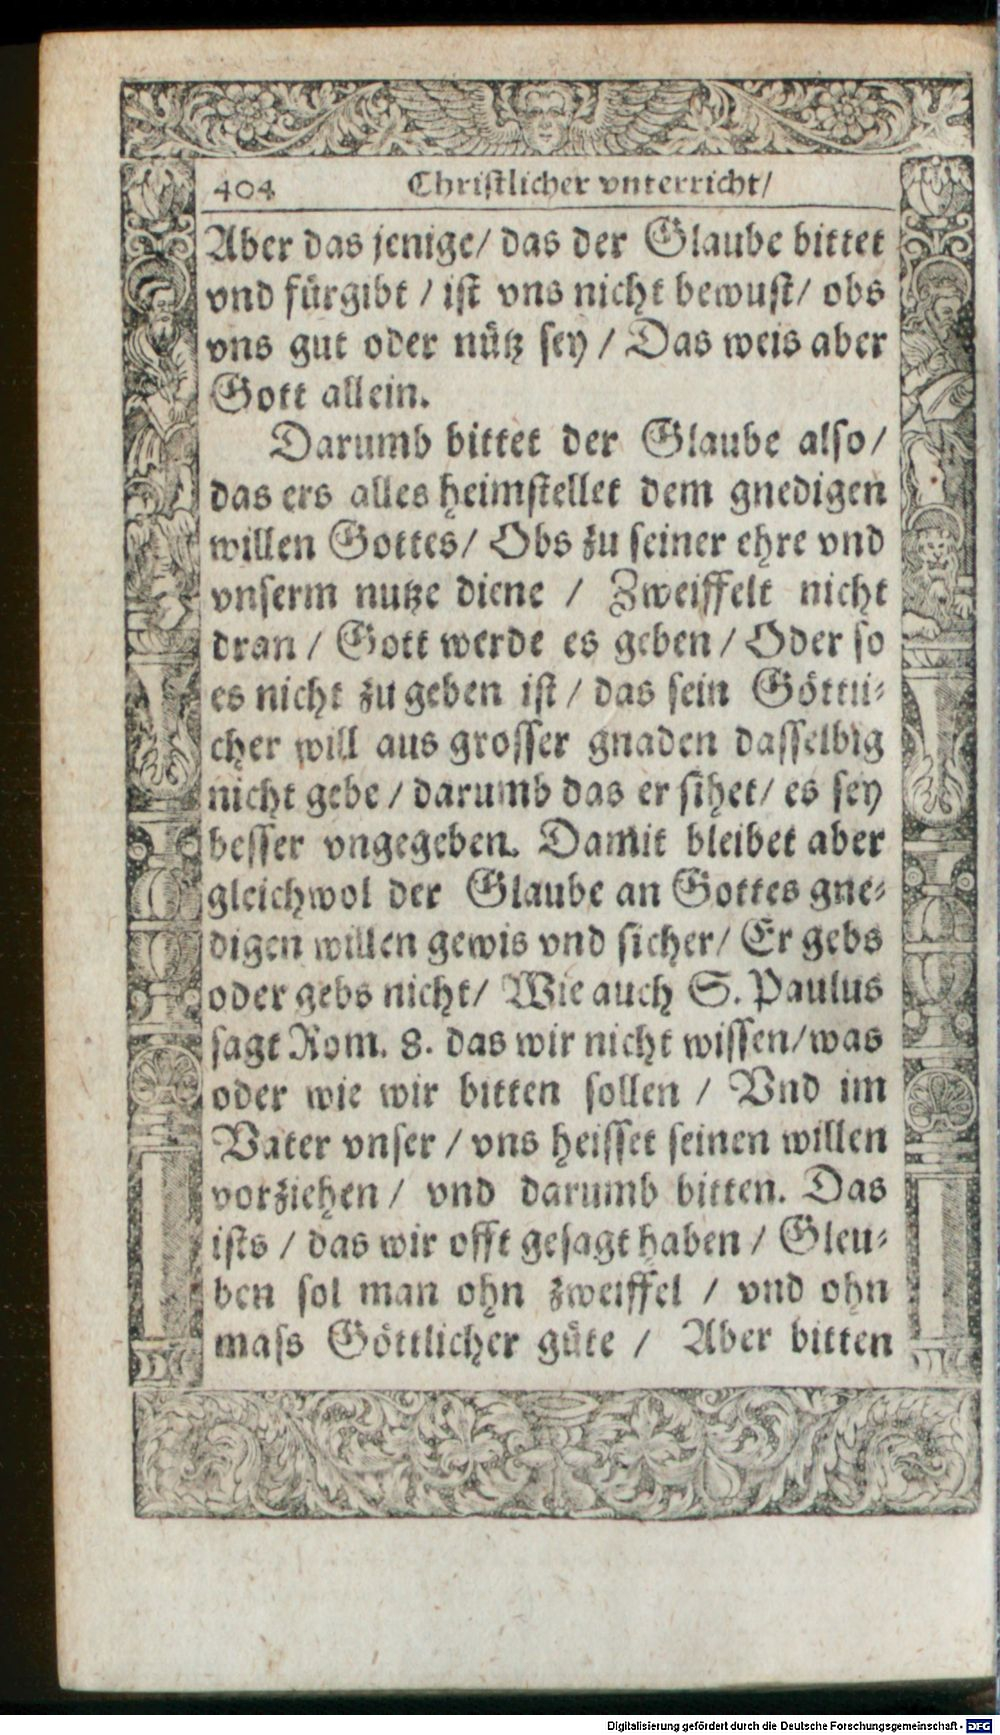 404 Christlicher vnterricht/
Aber das jenige/ das der Glaube bittet
vnd fürgibt / ist vns nicht bewust/ obs
vns gut oder nütz sey / Das weis aber
Gott allein.
Darumb bittet der Glaube also/
das ers alles heimstellet dem gnedigen
willen Gottes/ Obs zu seiner ehre vnd
vnserm nutze diene / Zweiffelt nicht
dran / Gott werde es geben / Oder so
es nicht zu geben ist / das sein Göttli⸗
cher will aus grosser gnaden dasselbig
nicht gebe / darumb das er sihet/ es sey
besser vngegeben. Damit bleibet aber
gleichwol der Glaube an Gottes gne⸗
digen willen gewis vnd sicher/ Er gebs
oder gebs nicht/ Wie auch S. Paulus
sagt Rom. 8. das wir nicht wissen/was
oder wie wir bitten sollen / Vnd im
Vater vnser / vns heisset seinen willen
vorziehen / vnd darumb bitten. Das
ists / das wir offt gesagt haben / Gleu⸗
ben sol man ohn zweiffel / vnd ohn
mass Göttlicher güte / Aber bitten
Digitalisierung gefördert durch die Deutsche Forschungsgemeinschaft - DFG